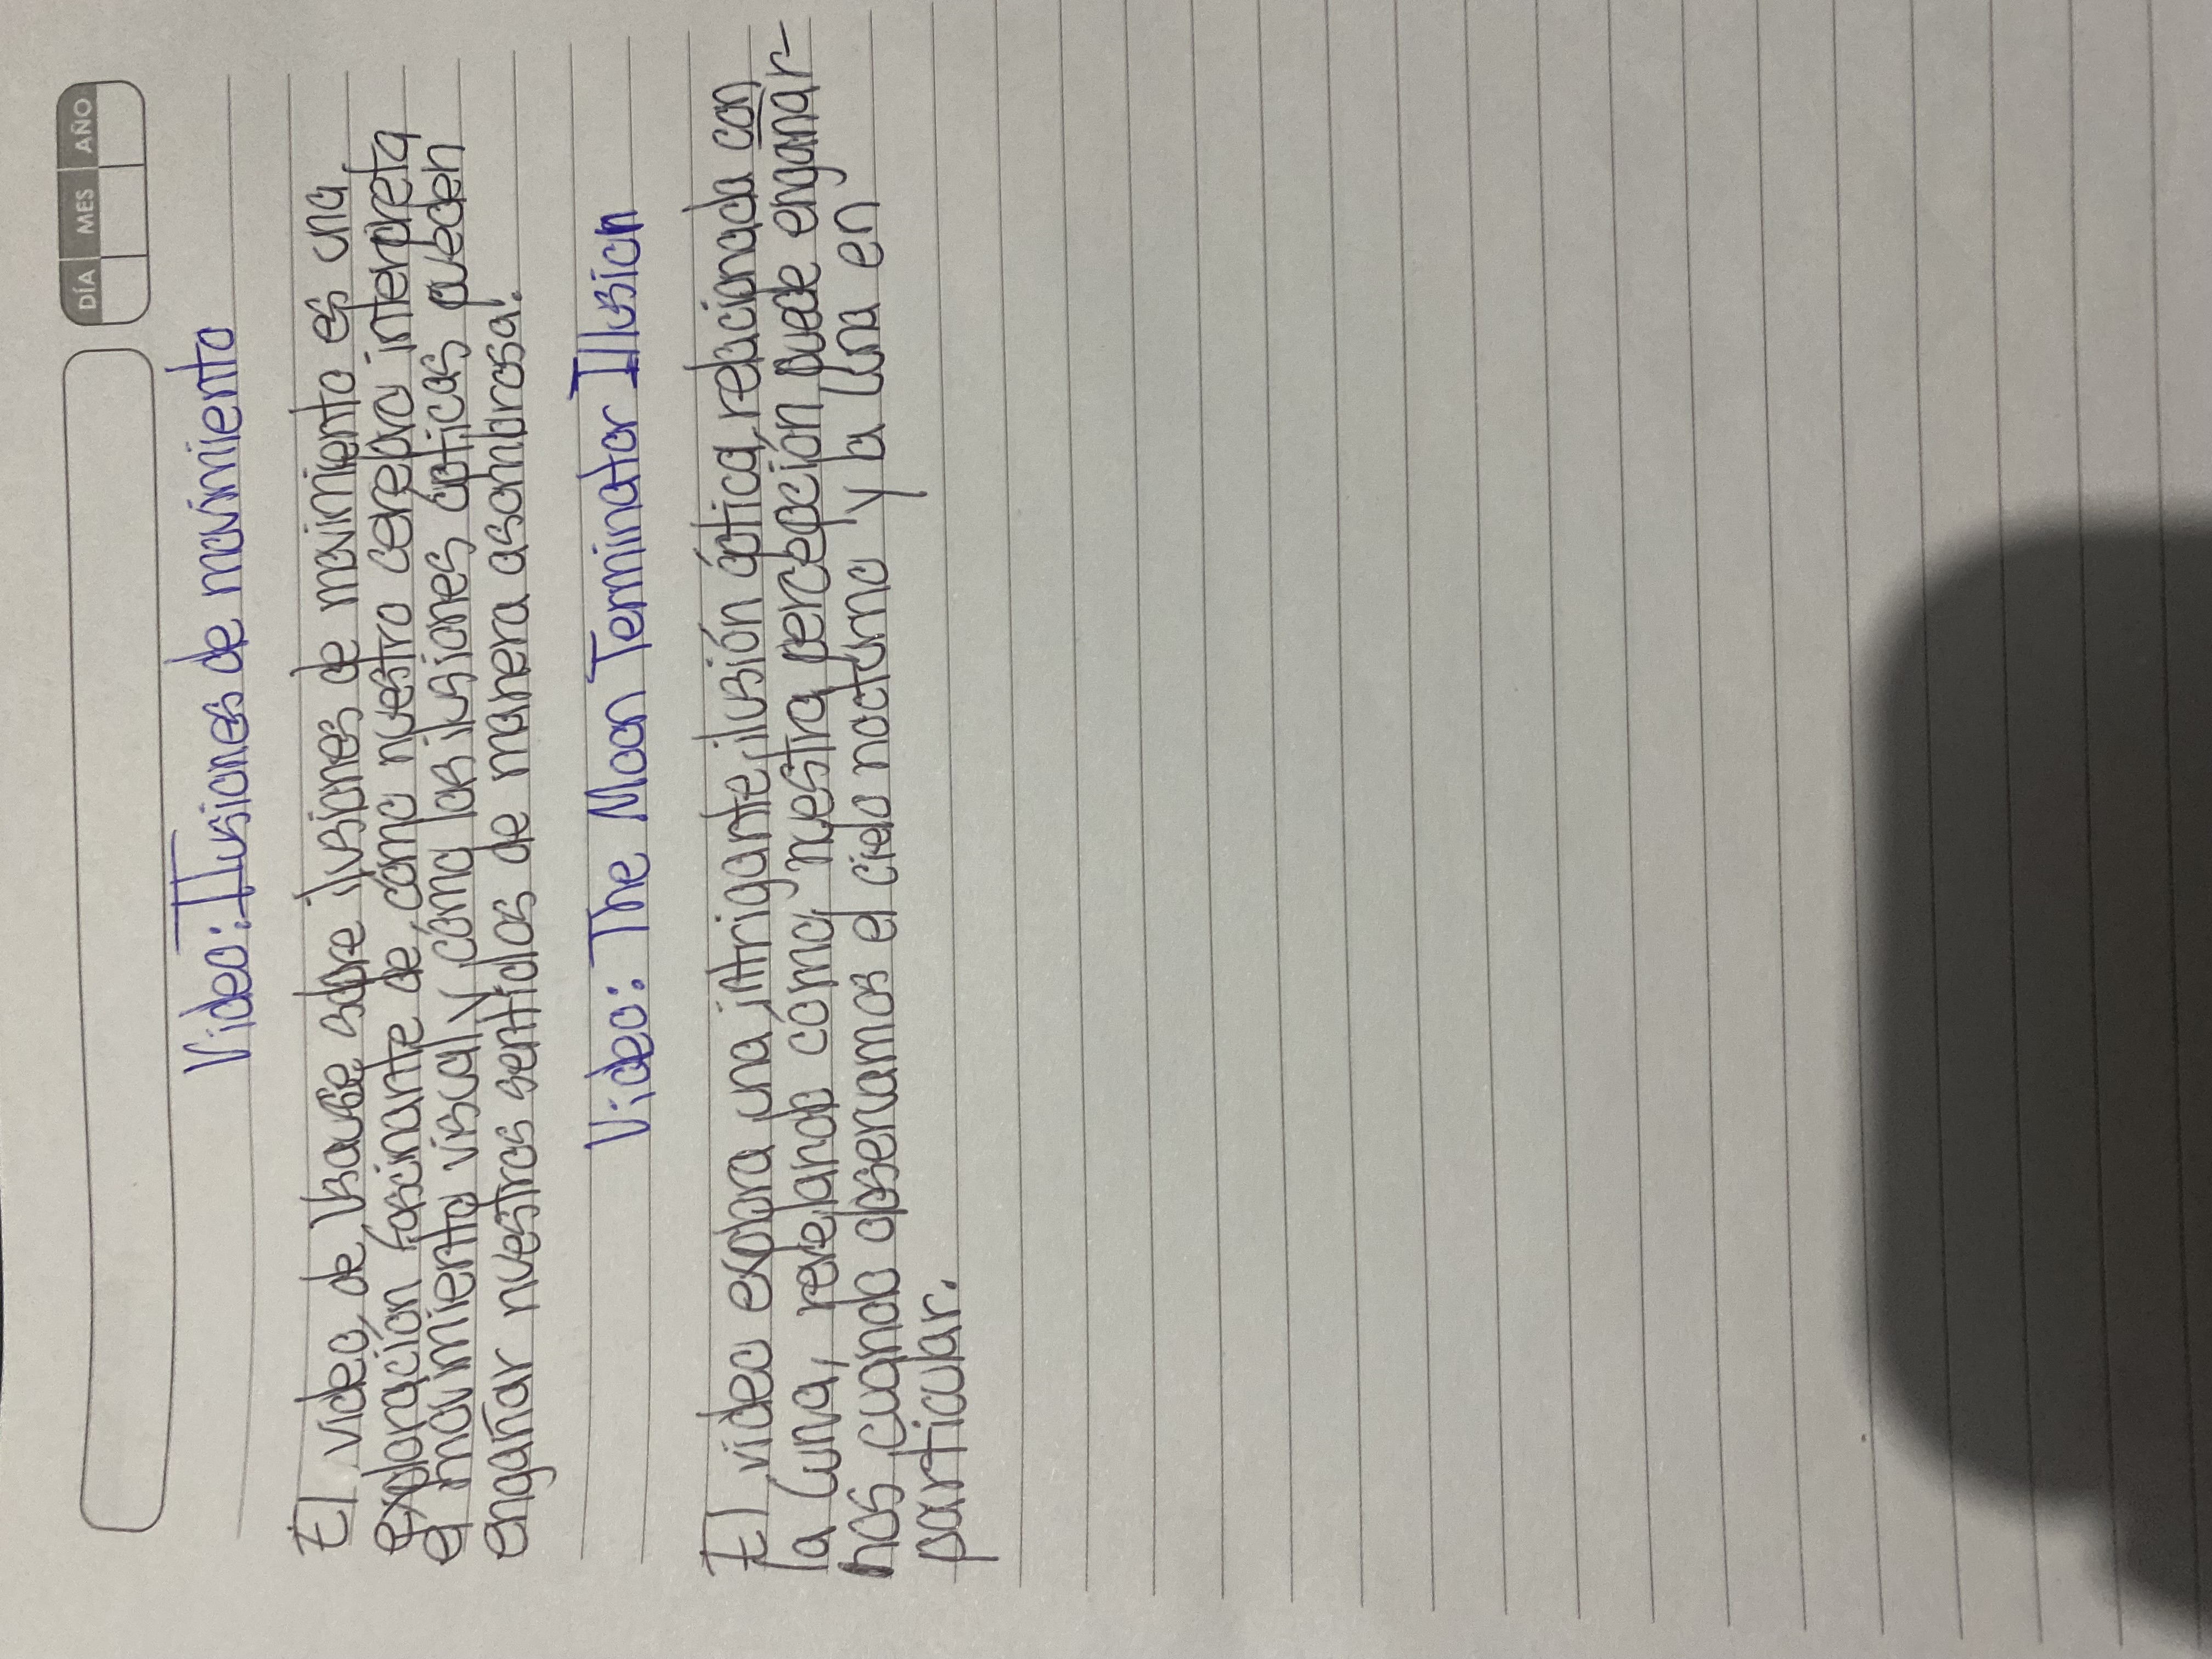 DÍA MES AÑO
Video: Ilusiones de movimiento
El video de Vsauce sobre ilusiones de movimiento es una
exploración fascinante de cómo nuestro cerebro interpreta
el movimiento visual y cómo las ilusiones ópticas pueden
engañar nuestros sentidos de manera asombrosa.
Video: The Moon Terminator Illusion
El video explora una intrigante ilusión óptica relacionada con
la Luna, revelando cómo nuestra percepción puede engañar-
nos cuando observamos el cielo nocturno y la luna en
particular.